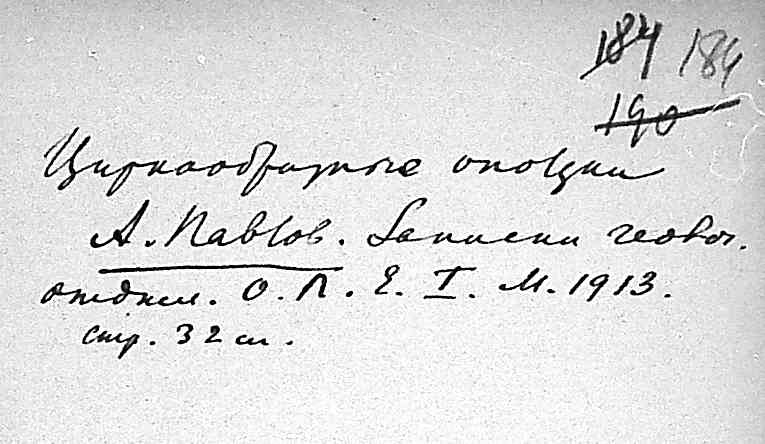 184 184
190
Циркообразные оползни
А. Павлов. Записки геолог.
отделен. О. Л. Е. I. М. 1913.
стр. 32 сл.